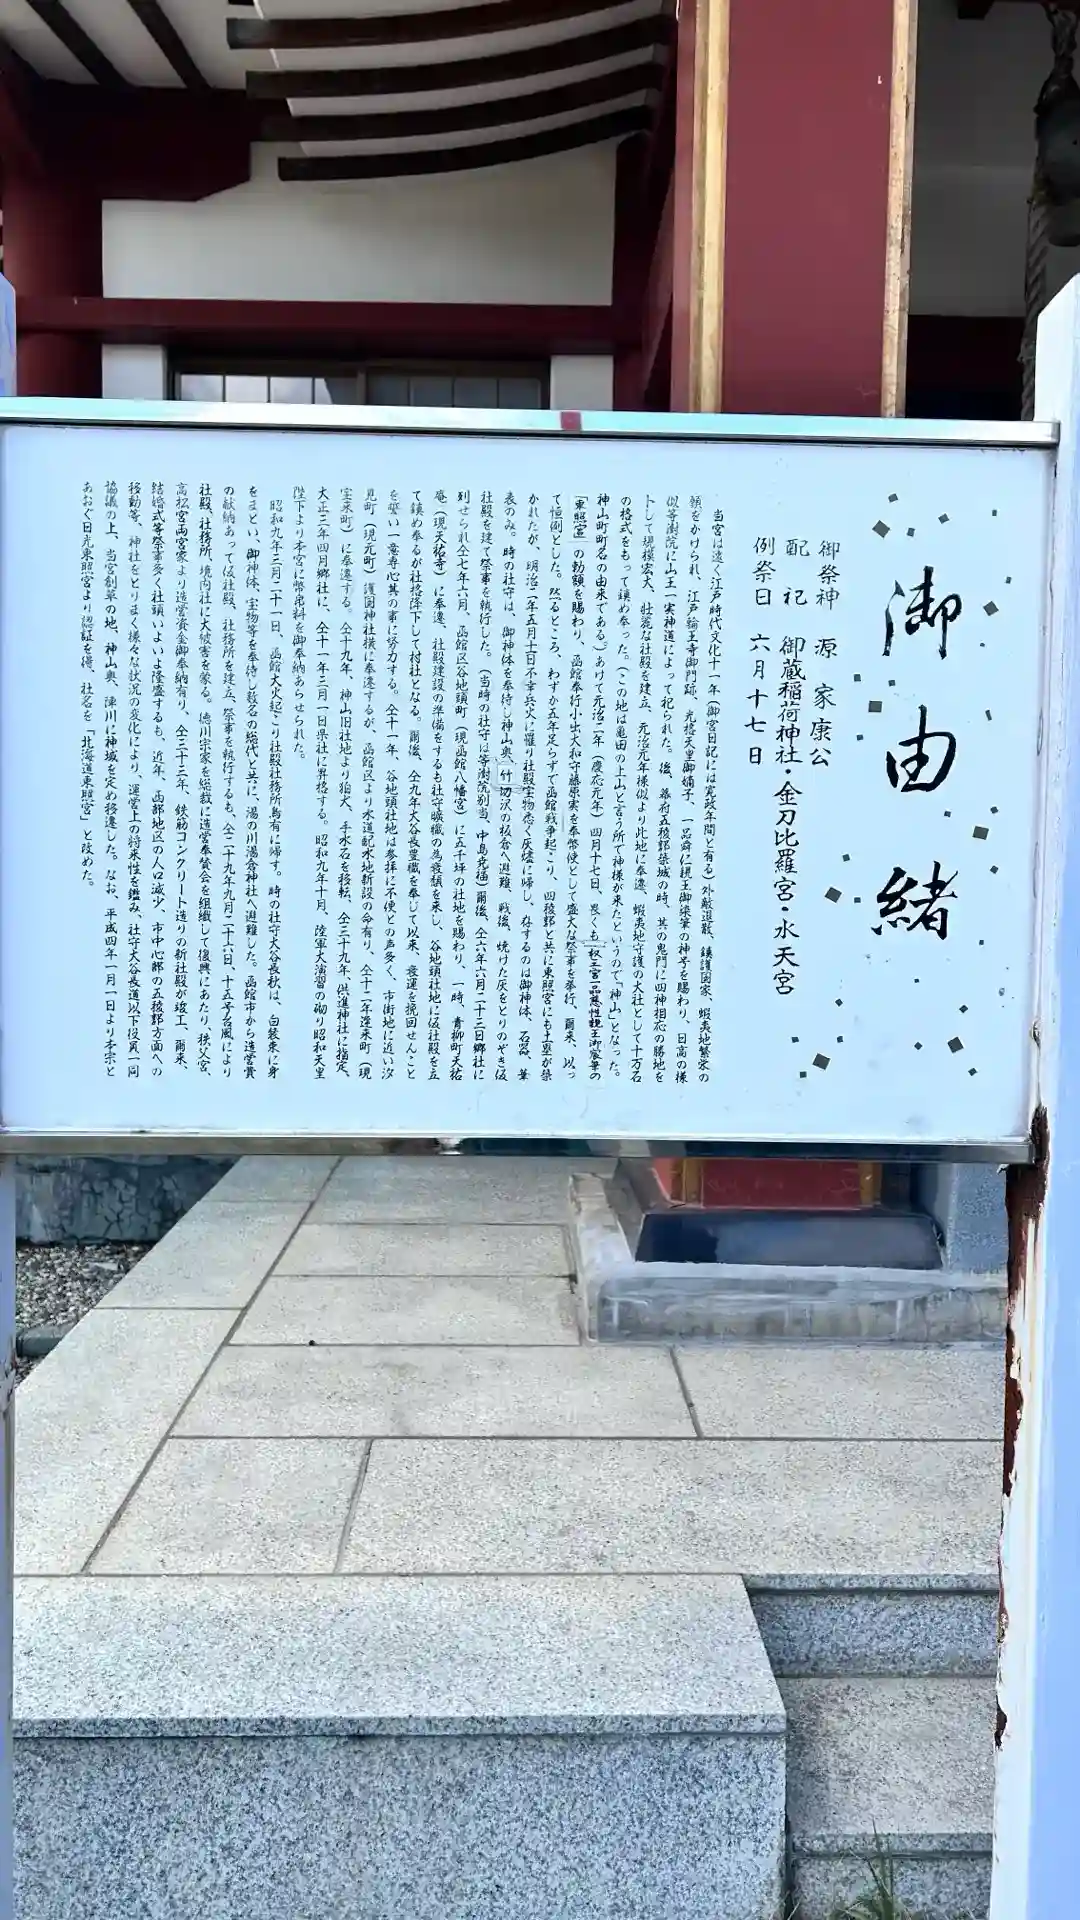 御由緒
御祭神　源　家康公
配　祀　御蔵稲荷神社・金刀比羅宮・水天宮
例祭日　六月十七日
当宮は遠く江戸時代文化十一年（御宮日記には寛政年間と有る）外敵退散、鎮護国家、蝦夷地繁栄の
願をかけられ、江戸輪王寺御門跡、光格天皇御猶子、一品舜仁親王御染筆の神号を賜わり、日高の様
似等澍院に山王一実神道によって祀られた。後、幕府五稜郭築城の時、其の鬼門に四神相応の勝地を
トして規模宏大、壮麗な社殿を建立、元治元年様似より此地に奉遷、蝦夷地守護の大社として十万石
の格式をもって鎮め奉った。（この地は亀田の上山と言う所で神様が来たというので「神山」となった。
神山町町名の由来である。）あけて元治二年（慶応元年）四月十七日、畏くも一品慈性親王御宸筆の
「東照宮」の勅額を賜わり、函館奉行小出大和守藤原実を奉幣使として盛大な祭事を挙行、爾来、以っ
て恒例とした。然るところ、わずか五年足らずで函館戦争起こり、四稜郭と共に東照宮にも土塁が築
かれたが、明治二年五月十一日不幸兵火に罹り社殿宝物悉く灰燼に帰し、存するのは御神体、石器、華
表のみ。時の社守は、御神体を奉侍し神山奥、竹切沢の板倉へ避難、戦後、焼けた灰をとりのぞき仮
社殿を建て祭事を執行した。（当時の社守は等澍院別当、中島尭福）爾後、仝六年六月二十三日郷社に
列せられ仝七年六月、函館区谷地頭町（現函館八幡宮）に五千坪の社地を賜わり、一時、青柳町天祐
庵（現天祐寺）に奉遷、社殿建設の準備をするも社守曠職の為衰頽を来し、谷地頭社地に仮社殿を立
て鎮め奉るが社格降下して村社となる。爾後、仝九年大谷長豊職を奉じて以来、衰運を挽回せんこと
を誓い一意専心其の事に努力する。仝十一年、谷地頭社地は参拝に不便との声多く、市街地に近い汐
見町（現元町）護国神社横に奉遷するが、函館区より水道配水地新設の命有り、仝十二年蓬来町（現
宝来町）に奉遷する。仝十九年、神山旧社地より狛犬、手水石を移転、仝三十九年、供進神社に指定、
大正三年四月郷社に、仝十一年三月一日県社に昇格する。昭和九年十月、陸軍大演習の砌り昭和天皇
陛下より本宮に幣帛料を御奉納あらせられた。
昭和九年三月二十一日、函館大火起こり社殿社務所烏有に帰す。時の社守大谷長秋は、白装束に身
をまとい、御神体、宝物等を奉侍し数名の総代と共に、湯の川湯倉神社へ避難した。函館市から造営費
の献納あって仮社殿、社務所を建立、祭事を執行するも、仝二十九年九月二十六日、十五号台風により
社殿、社務所、境内社に大破害を蒙る。徳川宗家を総裁に造営奉賛会を組織して復興にあたり、秩父宮、
高松宮両宮家より造営資金御奉納有り、仝三十三年、鉄筋コンクリート造りの新社殿が竣工、爾来、
結婚式等祭事多く社頭いよいよ隆盛するも、近年、西部地区の人口減少、市中心部の五稜郭方面への
移動等、神社をとりまく様々な状況の変化により、運営上の将来性を鑑み、社守大谷長道以下役員一同
協議の上、当宮創草の地、神山奥、陣川に神域を定め移遷した。なお、平成四年一月一日より本宗と
あおぐ日光東照宮より認証を得、社名を「北海道東照宮」と改めた。